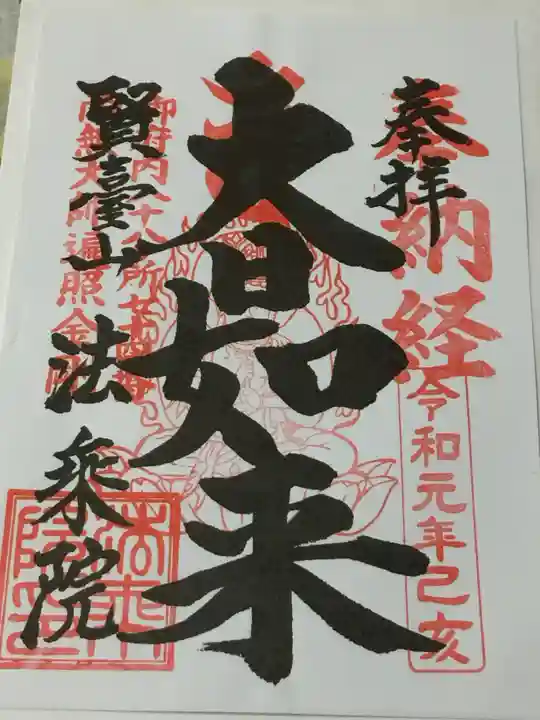 奉拝
奉納経
令和元年己亥
大日如来
御府内八十八ヶ所七十四番
南無大師遍照金剛
賢臺山
法乗院